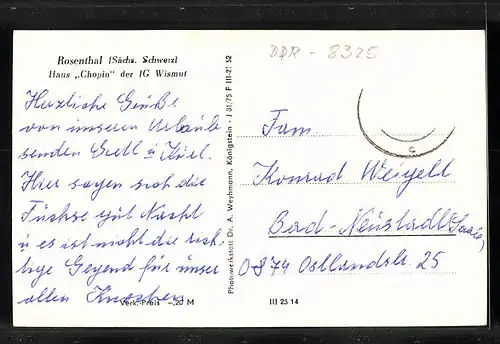 Rosenthal (Sächs. Schweiz)
Haus „Chopin" der IG Wismut
Herzliche Grüße
von unseren Urlaub
senden Gretl u. Karl.
Hier sagen sich die
Füchse gut Nacht
u es ist die rich
tige Gegend für unser
alten Knochen
Verk.-Preis –,20 M
Photowerkstatt Dr. A. Weyhmann, Königstein - J 81/75 F III-2 52
DDR - 8325
Fam.
Konrad Weigelt
Bad-Neustadt (Saale)
D 874 Ostlandstr. 25
III 25 14